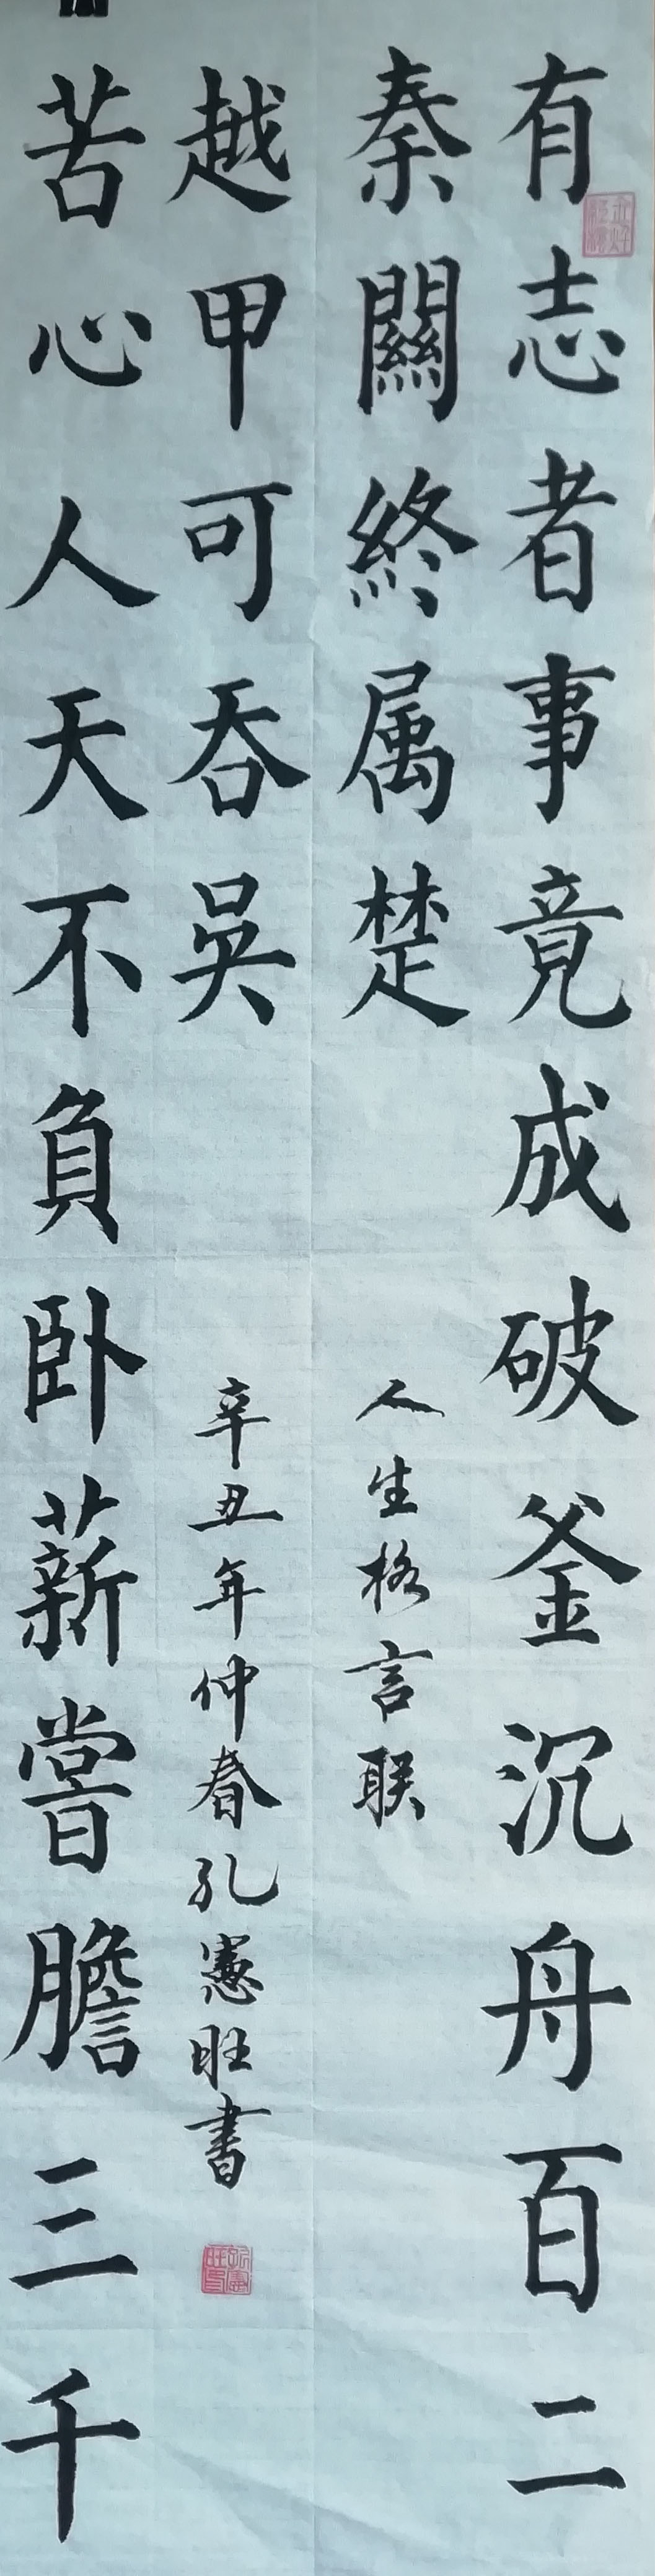 有志者事竟成破釜沉舟百二
秦關終属楚
人生格言联
苦心人天不負卧薪嘗膽三千
越甲可吞吳
辛丑年仲春孔憲旺書
孔憲旺印